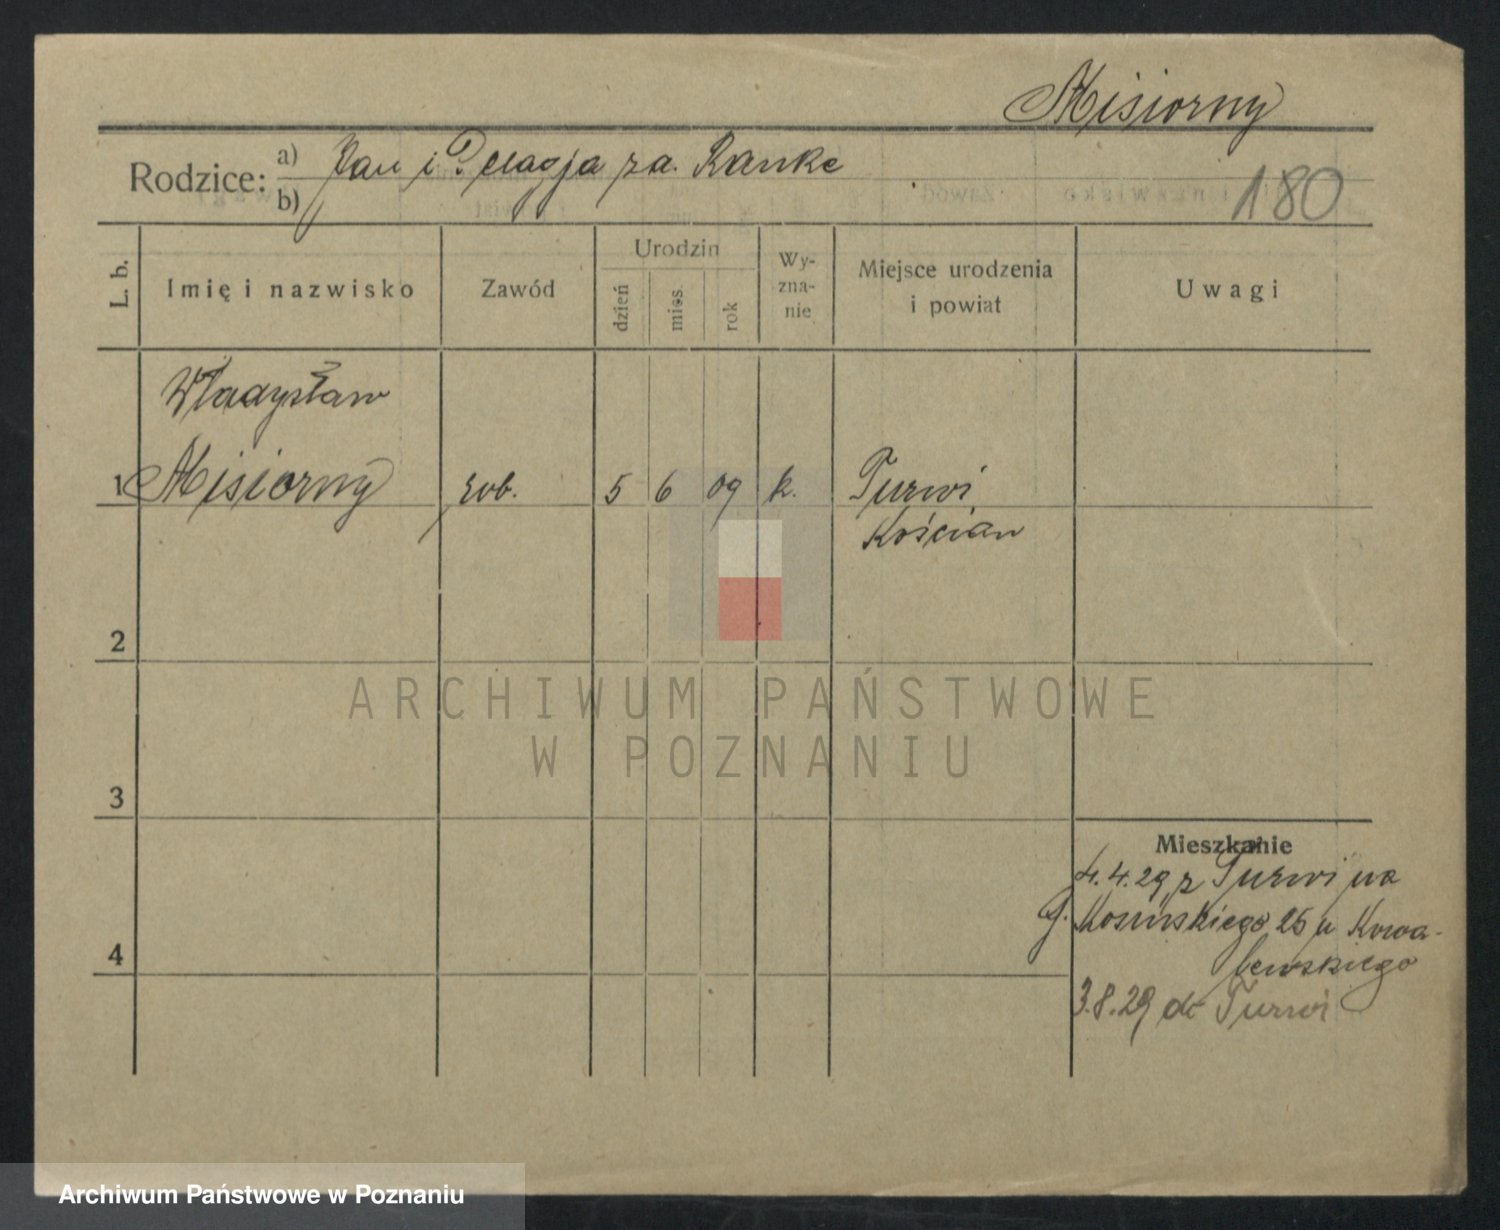 Misiorny
Rodzice: a) Jan i Pelagja za. Ranke
b)
180
L. b.
Imię i nazwisko
Zawód
Urodzin
dzień
mies.
rok
Wy-
zna-
nie
Miejsce urodzenia
i powiat
Uwagi
Władysław
1 Misiorny rob. 5 6 09 k. Turwi
Kościan
2
ARCHIWUM PAŃSTWOWE
W POZNANIU
3
Mieszkanie
4.4.29 z Turwi na
G. Kosińskiego 25 u Kowa-
4
lewskiego
3.8.29 do Turwi
Archiwum Państwowe w Poznaniu